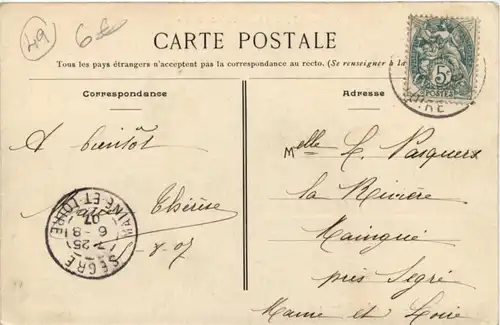 49
6
CARTE POSTALE
Tous les pays étrangers n'acceptent pas la correspondance au recto. (Se renseigner à la
Correspondance
Adresse
5c
POSTES
OIRE
A bientôt
Thérèse
-8-07
SEGRÉ
7-25
6-8
07
MAINE-ET-LOIRE
Melle L. Pasquer
la Rivière
Maingué
près Segré
Maine et Loire